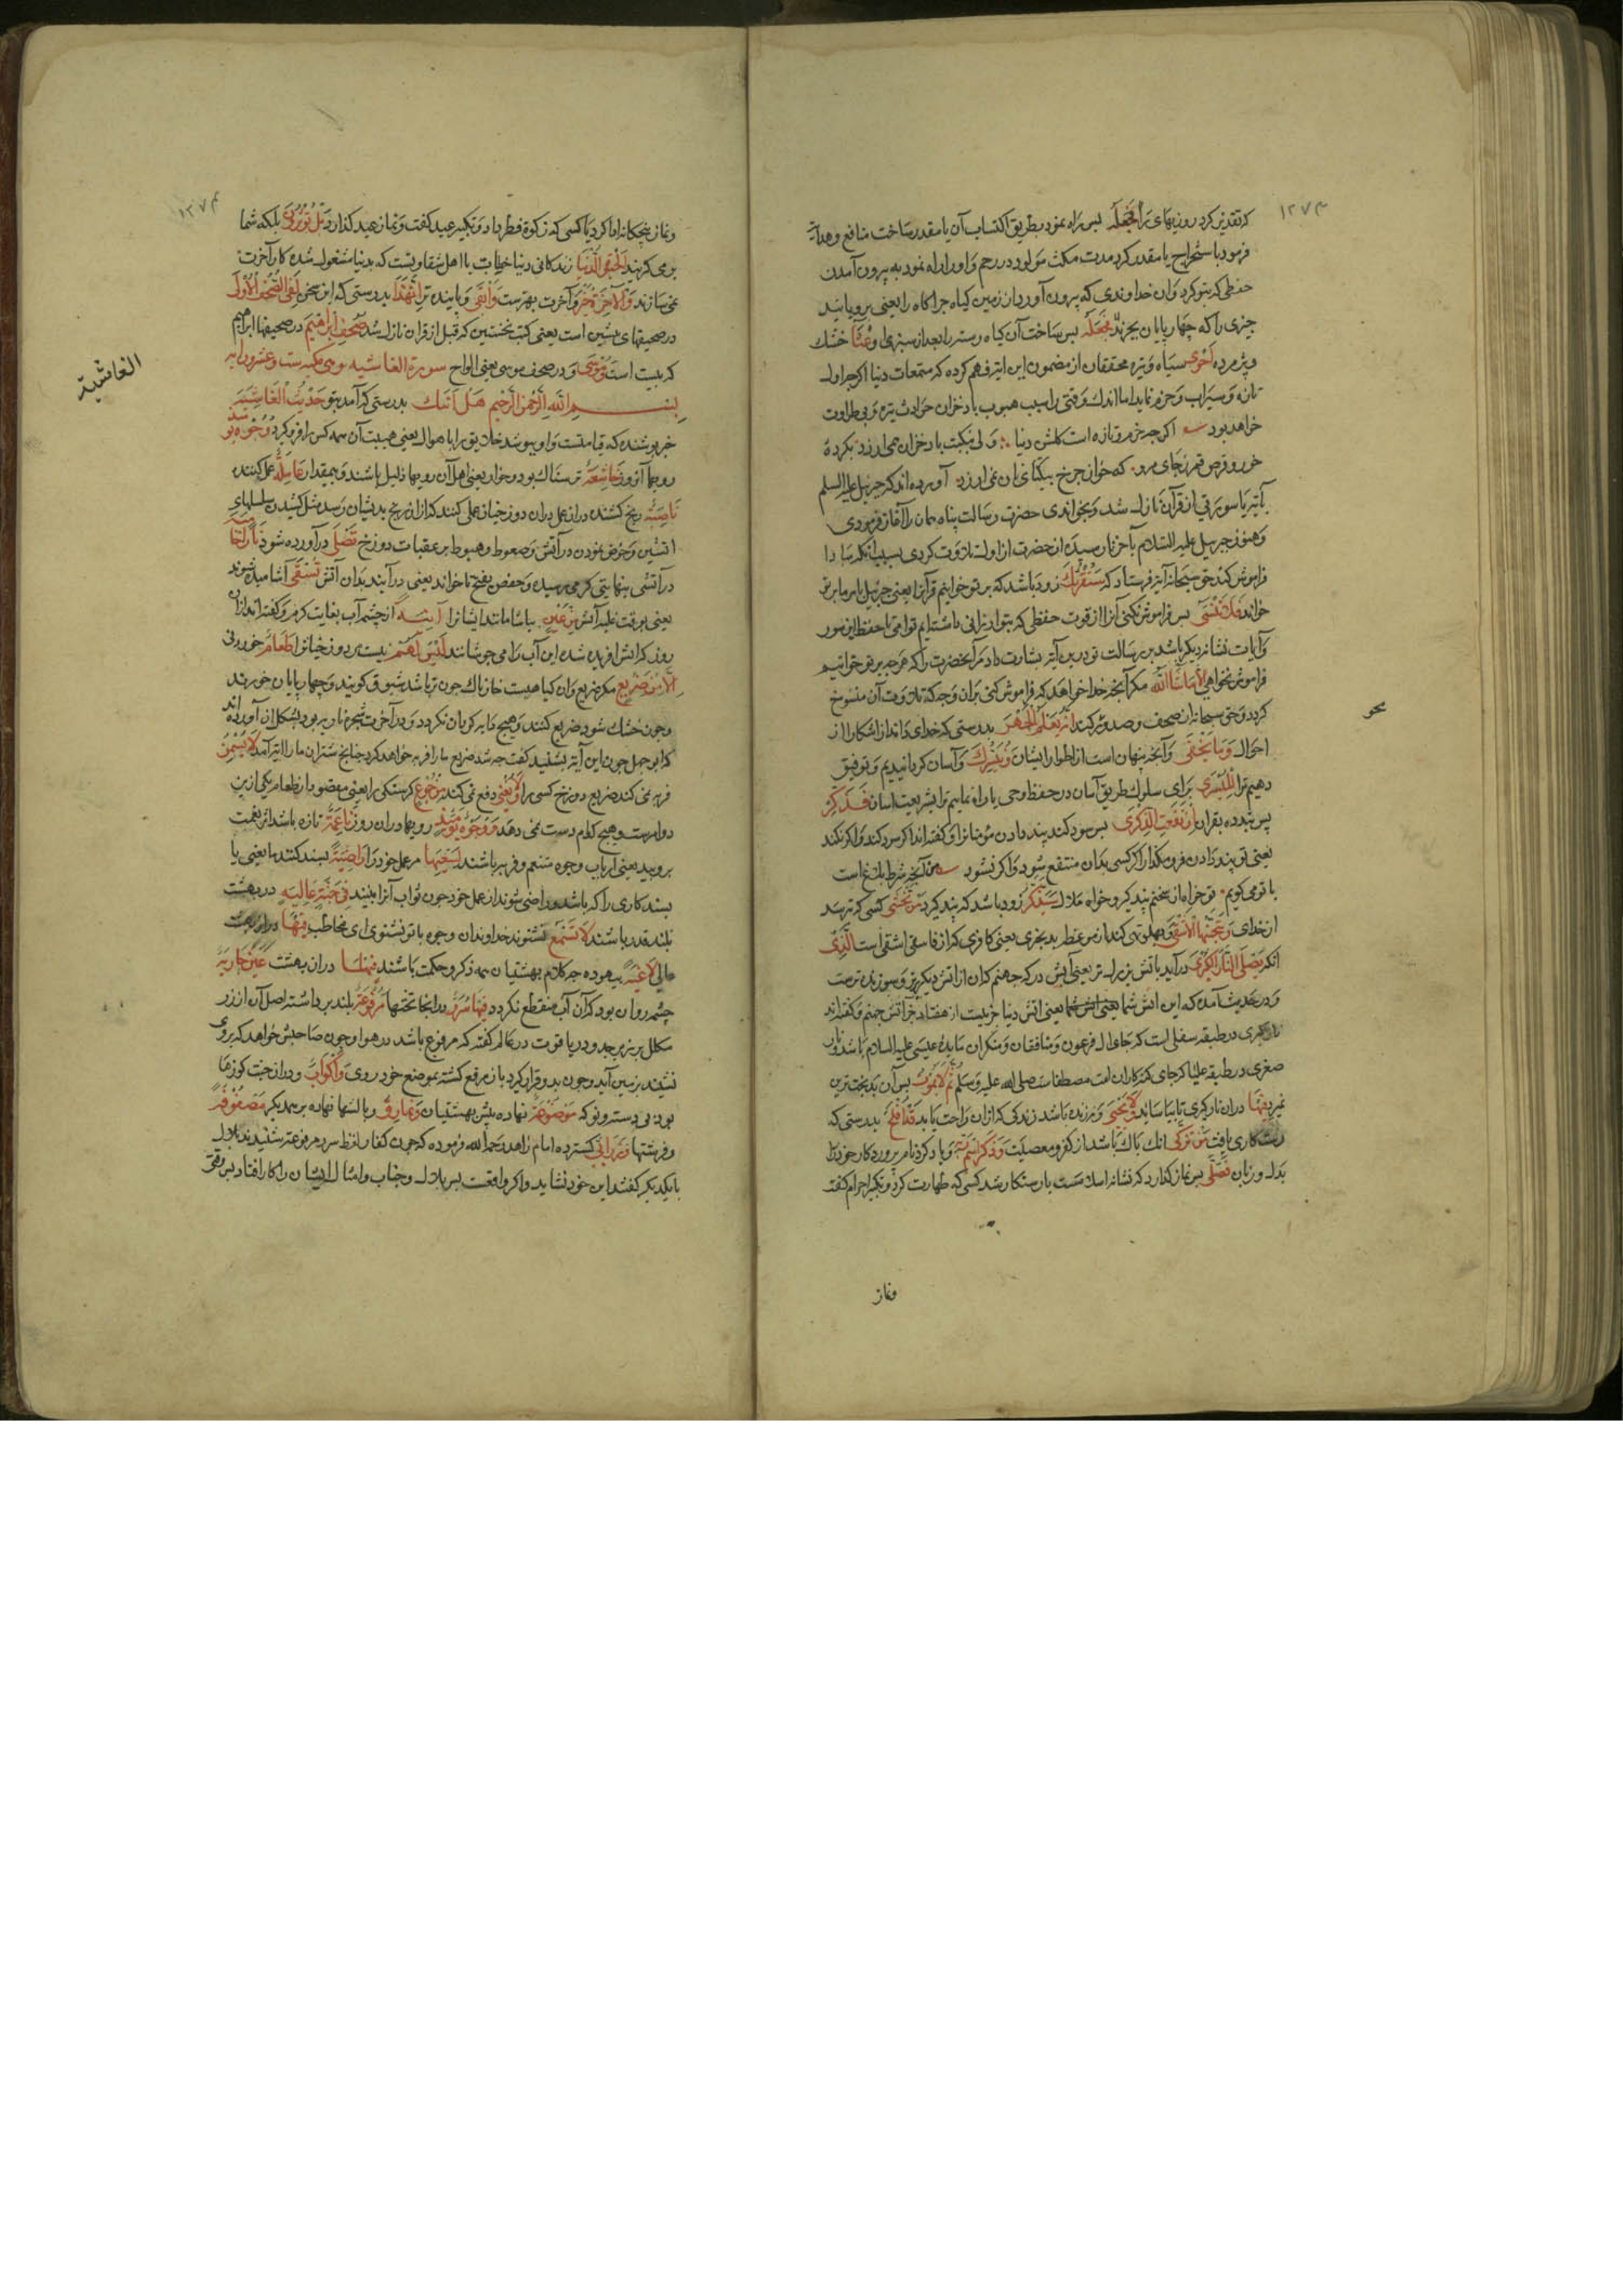 ١٢٧٣
که تقدیر کرد روزیهای ترا فَجَعَلَهُ پس راه نمود بطریق اکتساب آن یا مقدر ساخت منافع و هدایت
فرمود باستخراج یا مقدر کرد مدت مکث مولود در رحم و او را راه نمود به بیرون آمدن
حفظی که بتو کرد وان خداوندی که بیرون آورد از زمین کیاه چراکاه را یعنی برویانید
چیزی را که چهارپایان بچرند فَجَعَلَهُ پس ساخت آن کیاه رسته را بعد از سبزی او غُثَآءً خشک
و پژمرده اَحْوی سیاه و تیره محققان از مضمون این ایة فهم کرده که متمتعات دنیا اکرچه اول
تازه و سیراب و خرم نماید اما اندک وقتی را بسبب هبوب باد خزان حوادث تیره و بی طراوت
خواهد بود اکرچه خرم و تازه است کلشن دنیا ولی بنکبت باد خزان نمی ارزد بکرده
خور و قرص قمر ز جای مرو که خوان چرخ بیکتای نان نمی ارزد آورده اند که جبرئیل علیه السلم
آیة یا سورتی از قرآن نازل شد و بخواندی حضرت رسالت پناه همان را آغاز فرمودی
و هنوز جبریل علیه السلام بآخر نارسیده ان حضرت از اول تلاوت کردی بسبب انکه مبادا
فراموش کند حق سبحانه آیة فرستاد که سَنُقْرِئُکَ زود باشد که بر تو خوانیم قرآنرا یعنی جبرئیل بامر ما بر تو
خواند فَلا تَنْسی پس فراموش نکنی آنرا از قوت حفظی که بتو ارزانی داشته ایم تو امی با حفظ این سور
و آیات نشانه دیکر باشد بر رسالت تو درین آیة بشارت داد مر آنحضرت را که هرچه بر تو خوانیم
فراموش نخواهی اِلّا ما شآءَ اللّٰهُ مکر آنچه خدا خواهد که فراموش کنی بران وجه که تلاوت آن منسوخ
کردد و حق سبحانه از صحف و صدور کند اِنَّهُ یَعْلَمُ الْجَهْرَ بدرستی که خدای داند اشکارا از
احوال وَ ما یَخْفی و آنچه پنهان است از اطوار ایشان وَ نُیَسِّرُکَ و آسان کردانیدیم و توفیق
دهیم ترا لِلْیُسْری برای سلوک طریق آسان در حفظ وحی یا راه نماییم ترا بشریعت اسان فَذَکِّرْ
پس پند ده بقران اِنْ نَفَعَتِ الذِّکْری پس سود کند پند دادن مؤمنانرا و کفته اند اکر سود کند و اکر نکند
یعنی تو پند دادن فرو مکذار اکر کسی بدان منتفع شود و اکر نشود من آنچه شرط بلاغ است
با تو می کویم تو خواه از سخنم پند کیر و خواه ملال سَیَذَّکَّرُ زود باشد که پند کیرد مَنْ یَخْشی کسی که ترسد
از خدای وَ یَتَجَنَّبُهَا الْاَشْقَی و پهلو تهی کند از موعظه بدبختری یعنی کافری که از فاسق اشقی است اَلَّذی
انکه یَصْلَی النّارَ الْکُبْری درآید باتش بزرک تر یعنی آتش درکه جهنم که ان از اتش دیکر تیزتر و سوزنده ترست
و در حدیث آمده که این اتش شما یعنی اتش شما یعنی اتش دنیا جزویست از هفتاد جزو آتش جهنم و کفته اند
نار کبری در طبقه سفلی است که جای ال فرعون و منافقان و منکران مایده عیسی علیه السلام باشد و نار
صغری در طبقه علیا که جای کنه کاران امت مصطفاست صلی الله علیه و سلم ثُمَّ لا یَمُوتُ پس آن بدبخت ترین
نمیرد فیها دران نار کبری تا بیاساید وَ لا یَحْیی و نه زنده باشد زندکی که ازان راحت یابد قَدْ اَفْلَحَ بدرستی که
رستکاری یافت مَنْ تَزَکّی انک پاک باشد از کفر و معصیت وَ ذَکَرَ اسْمَ رَبِّهِ و یاد کرد نام پروردکار خود را
بدل و زبان فَصَلّی پس نماز کذارد که نشانه اسلامست یا رستکار شد کسی که طهارت کرد و تکبیر احرام کفته
ونماز
١٢٧٤
ونماز پنجکانه ادا کرد یا کسی که زکوة فطر داد و تکبیر عید کفت و نماز عید کذارد بَلْ تُؤْثِرُونَ بلکه شما
بر می کزینید اَلْحَیٰوةَ الدُّنْیا زندکانی دنیا خطاب با اهل شقاوتست که بدنیا مشغول شده کار آخرت
نمی سازند وَ الْآخِرَةُ خَیْرٌ و آخرت بهترست وَ اَبْقی و پاینده تر اِنَّ هٰذا بدرستی که این سخن لَفِی الصُّحُفِ الْاُولی
در صحیفهای پیشین است یعنی کتب نخستین که قبل از قران نازل شد صُحُفِ اِبْراهیمَ در صحیفهای ابراهیم
که بیست است وَ مُوسی و در صحف موسی یعنی الواح سورة الغاشیه وهی مکیه ست وعشرون ایه
الغاشیة
بِسْمِ اللّٰهِ الرَّحْمٰنِ الرَّحیمِ هَلْ اَتٰیکَ بدرستی که آمد بتو حَدیثُ الْغاشِیَةِ
خبر پوشنده که قیامتست و او پوشد خلایق را باهوال یعنی هیبت آن همه کس را فرو کیرد وُجُوهٌ یَوْمَئِذٍ
رویها آنروز خاشِعَةٌ ترسناک بود و خوار یعنی اهل آن رویها ذلیل باشند و بیمقدار عامِلَةٌ عمل کننده
ناصِبَةٌ رنج کشنده دران عمل دران دوزخیان عملی کنند که ازان رنج بدیشان رسد مثل کشیدن سلسلهای
اتشین و خوض نمودن در آتش و صعوط و هبوط بر عقبات دوزخ تَصْلی درآورده شود ناراً حامِیَةً
در آتشی بنهایت کرمی رسیده و حفص بفتح تا خواند یعنی درآیند بدان آتش تُسْقی آشامیده شوند
یعنی بوقت غلبه آتش مِنْ عَیْنٍ بیاشامانند ایشانرا آنِیَةٍ از چشمه آب بغایت کرم و کفته اند ازان
روز که اتش افریده شده این آب را می جوشانند لَیْسَ لَهُمْ نیست مر دوزخیانرا طَعامٌ خوردنی
اِلّا مِنْ ضَریعٍ مکر ضریع وان کیاهیست خارناک چون تر باشد شبرق کویند و چهارپایان خورند
و چون خشک شود ضریع کنند و هیچ دابه کرد آن نکردد و در آخرت شجره ناریه بود بشکل آن آورده اند
که ابوجهل چون این آیة بشنید کفت چه شد ضریع ما را فربه خواهد کرد چنانچ شتران ما را ایة آمد لا یُسْمِنُ
فربه نمی کند ضریع دوزخ کسی را وَ لا یُغْنی و دفع نمی کند مِنْ جُوعٍ کرسنکی را یعنی مقصود از طعام یکی ازین
دو امرست و هیچ کدام دست نمی دهد وُجُوهٌ یَوْمَئِذٍ رویها دران روز ناعِمَةٌ تازه باشد اثر نعمت
برو پدید یعنی ارباب وجوه متنعم و فربه باشند لِسَعْیِها مر عمل خود را راضِیَةٌ پسند کننده یعنی با
پسند کاری را که باشد و راضی شوند از عمل خود چون ثواب آنرا ببینند فی جَنَّةٍ عالِیَةٍ در بهشت
بلند قدر باشند لا تَسْمَعُ نشنوند خداوندان وجوه یا تو نشنوی ای مخاطب فیها دران بهشت
عالی لاغِیَةً بیهوده چه کلام بهشتیان همه ذکر و حکمت باشند فیها دران بهشت عَیْنٌ جارِیَةٌ
چشمه روان بود که آن آب منقطع نکردد فیها سُرُرٌ در انجا تختها مَرْفُوعَةٌ بلند برداشته اصل آن از زر
مکلل بزبرجد و در و یاقوت در معالم کفته که مرفوع باشد در هوا و چون صاحبش خواهد که بروی
نشیند بزمین آید و چون بدو قرار کیرد باز مرفع کشته بموضع خود رود وَ اَکْوابٌ و دران جنت کوزها
بود بی دسته و نوکه مَوْضُوعَةٌ نهاده پیش بهشتیان وَ نَمارِقُ و بالشها نهاده بر همدیکر مَصْفُوفَةٌ
و فرشتها وَ زَرابِیُّ کسترده امام زاهد رحمه الله فرموده که چون کفار لفظ سرر مرفوعه شنیدند بلال
بایکدیکر کفتند این خود نشاید و اکر واقعست پس بلال و خباب و امثال ایشان را کار افتاد بس وقتی